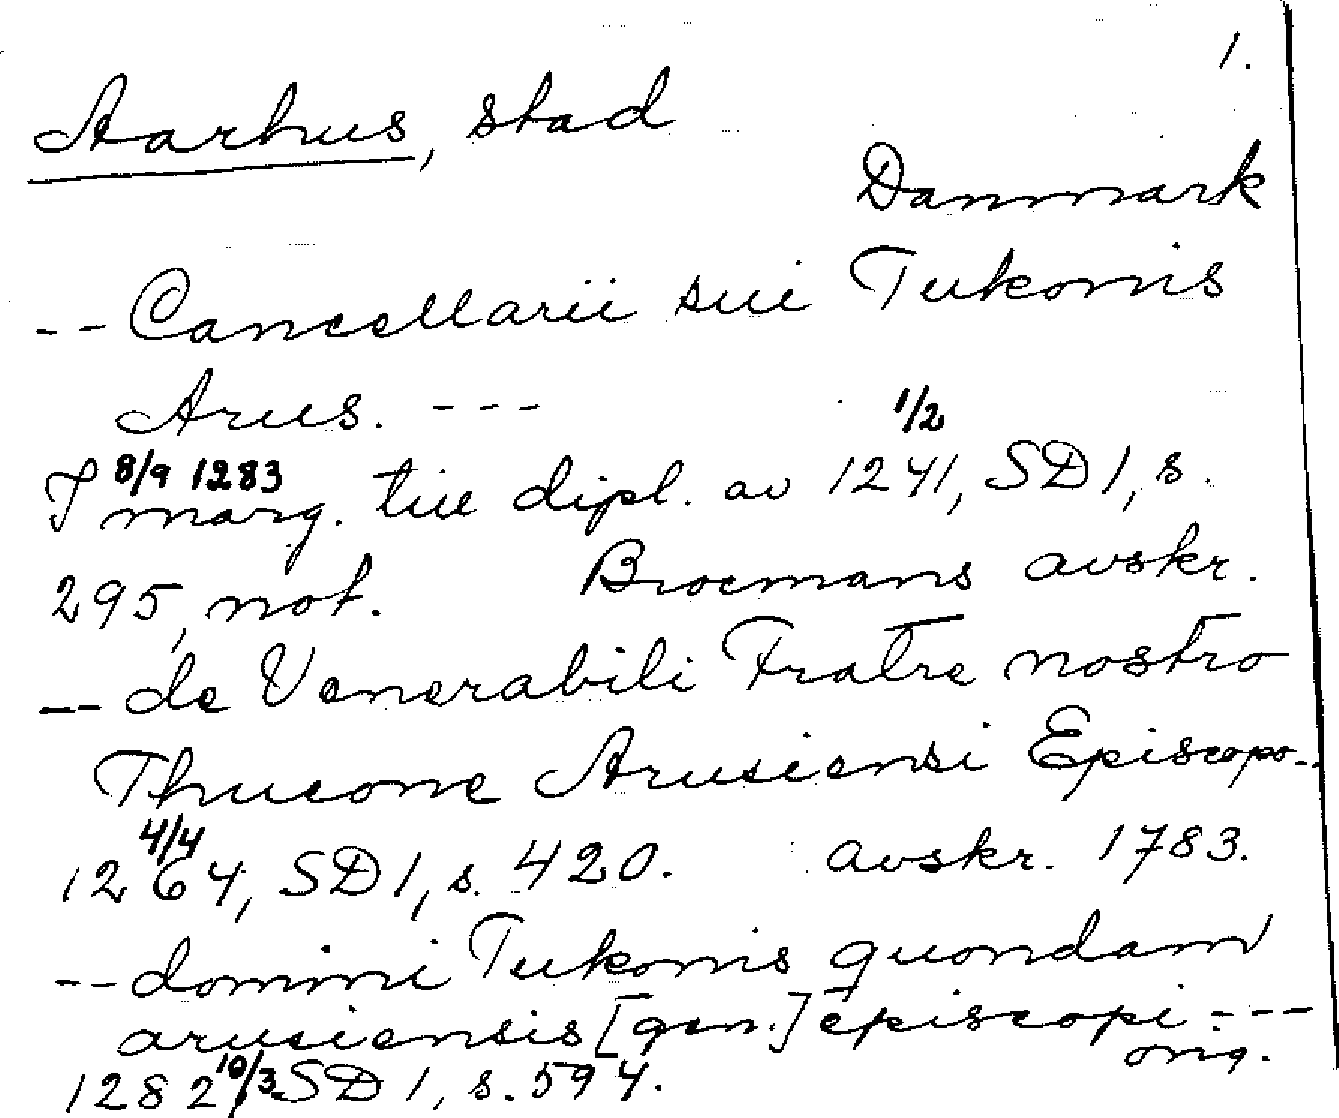 1.
Aarhus, stad
Danmark
-- Cancellarii sui Tukonis
Arus. ---
1/2
8/9 1283
I marg. till dipl. av 1241, SD 1, s.
295, not. Brocmans avskr.
-- de Venerabili Fratre nostro
Thucone Arusiensi Episcopo--
4/4
1264, SD 1, s. 420. avskr. 1783.
-- domini Tukonis quondam
arusiensis [gen.] episcopi ---
orig.
1282 10/3 SD 1, s. 594.